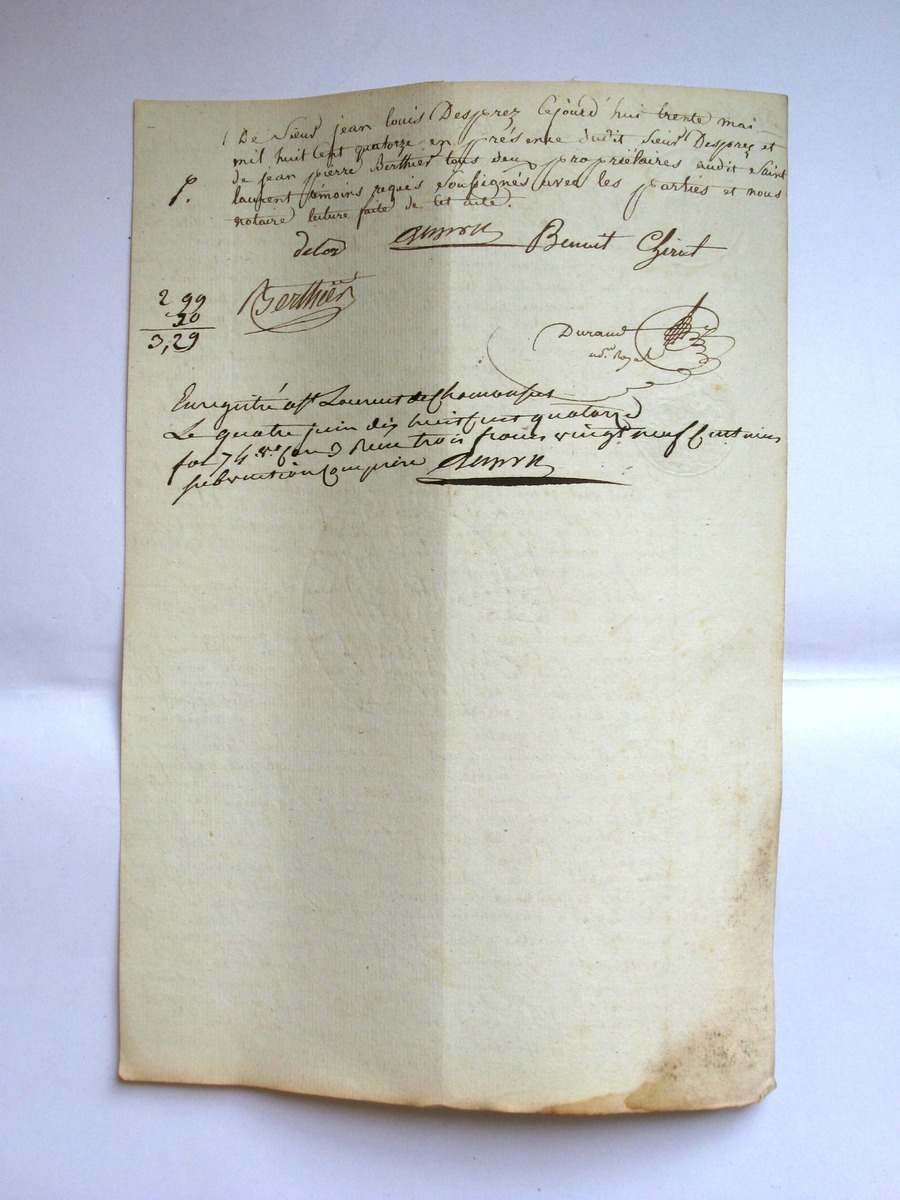 De Sieur jean louis Desprez Cejourd'hui trente mai
mil huit cent quatorze en présence dudit Sieur Desprez et
de jean pierre Berthier tous deux propriétaires audit Saint
laurent témoins requis Soussignés avec les parties et nous
notaire lecture faite de cet acte.
Benoit Chirat
Berthier
2 99
30
3,29
Durand
no.re Royal
Enregistré a St Laurent de Chamousset
Le quatre juin dix huit cent quatorze
fol 74 vo Case 3 Reçu trois francs vingt neuf centimes
subvention Comprise